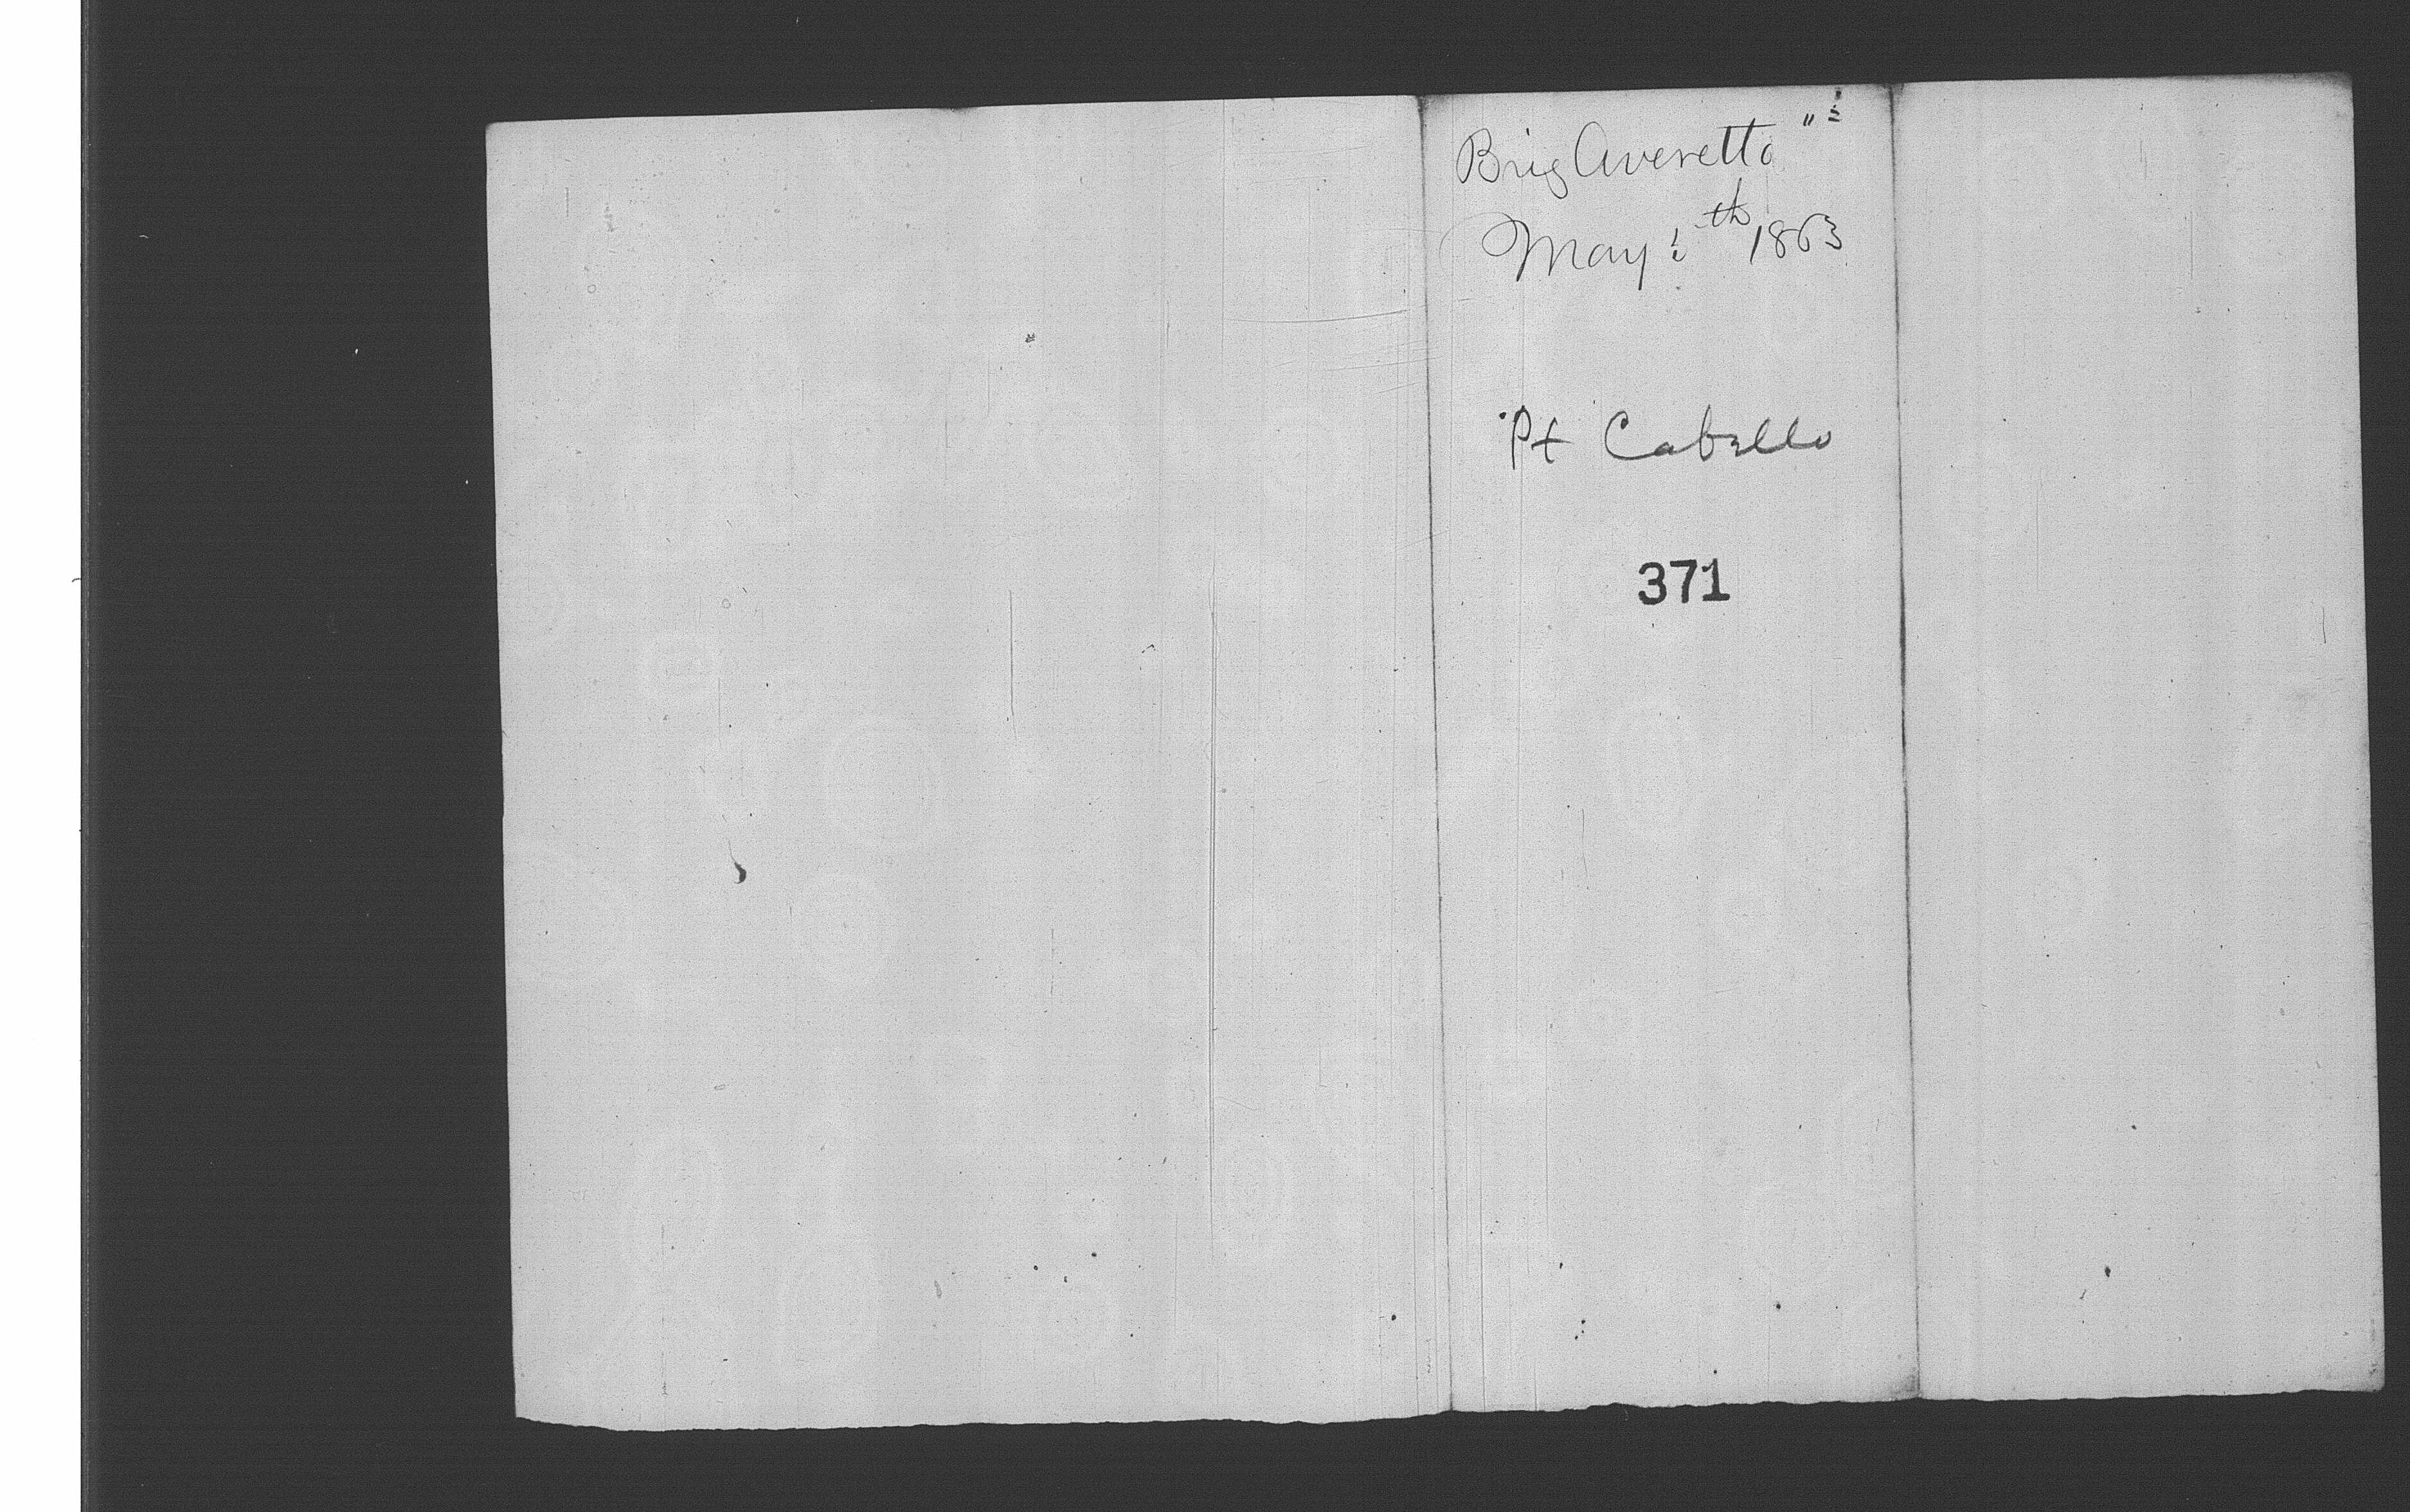 Brig Averetto
May th 1863
Pt Cabello
371